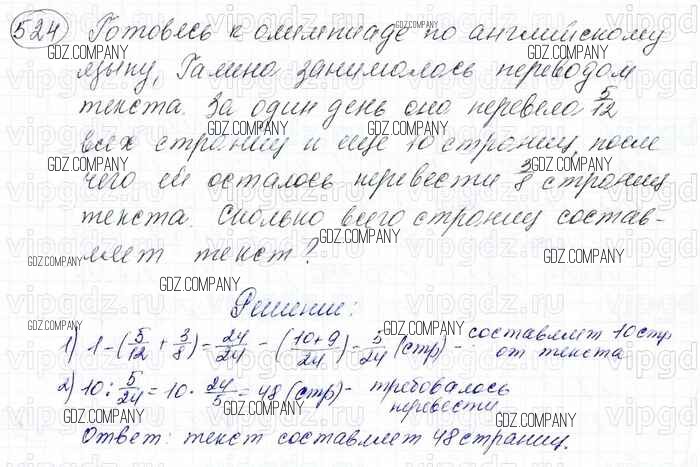 524 Готовясь к олимпиаде по английскому
языку, Галина занималась переводом
текста. За один день она перевела 5/12
всех страниц и ещё 10 страниц, после
чего ей осталось перевести 3/8 страниц
текста. Сколько всего страниц состав-
ляет текст?
Решение:
1) 1-(5/12 + 3/8)= 24/24 - (10+9/24)= 5/24 (стр) - составляет 10 стр
от текста
2) 10 : 5/24 = 10 · 24/5 = 48 (стр) - требовалось
перевести
Ответ: текст составляет 48 страниц.
GDZ.COMPANY
vipgdz.ru